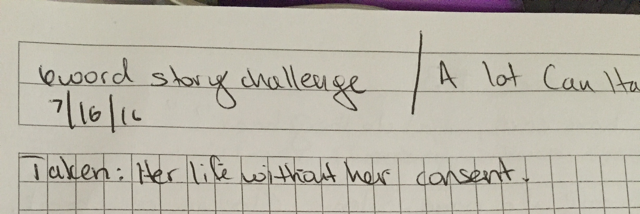 6word story challenge / A lot Can Ha
7/16/16
Taken: Her life without her consent.